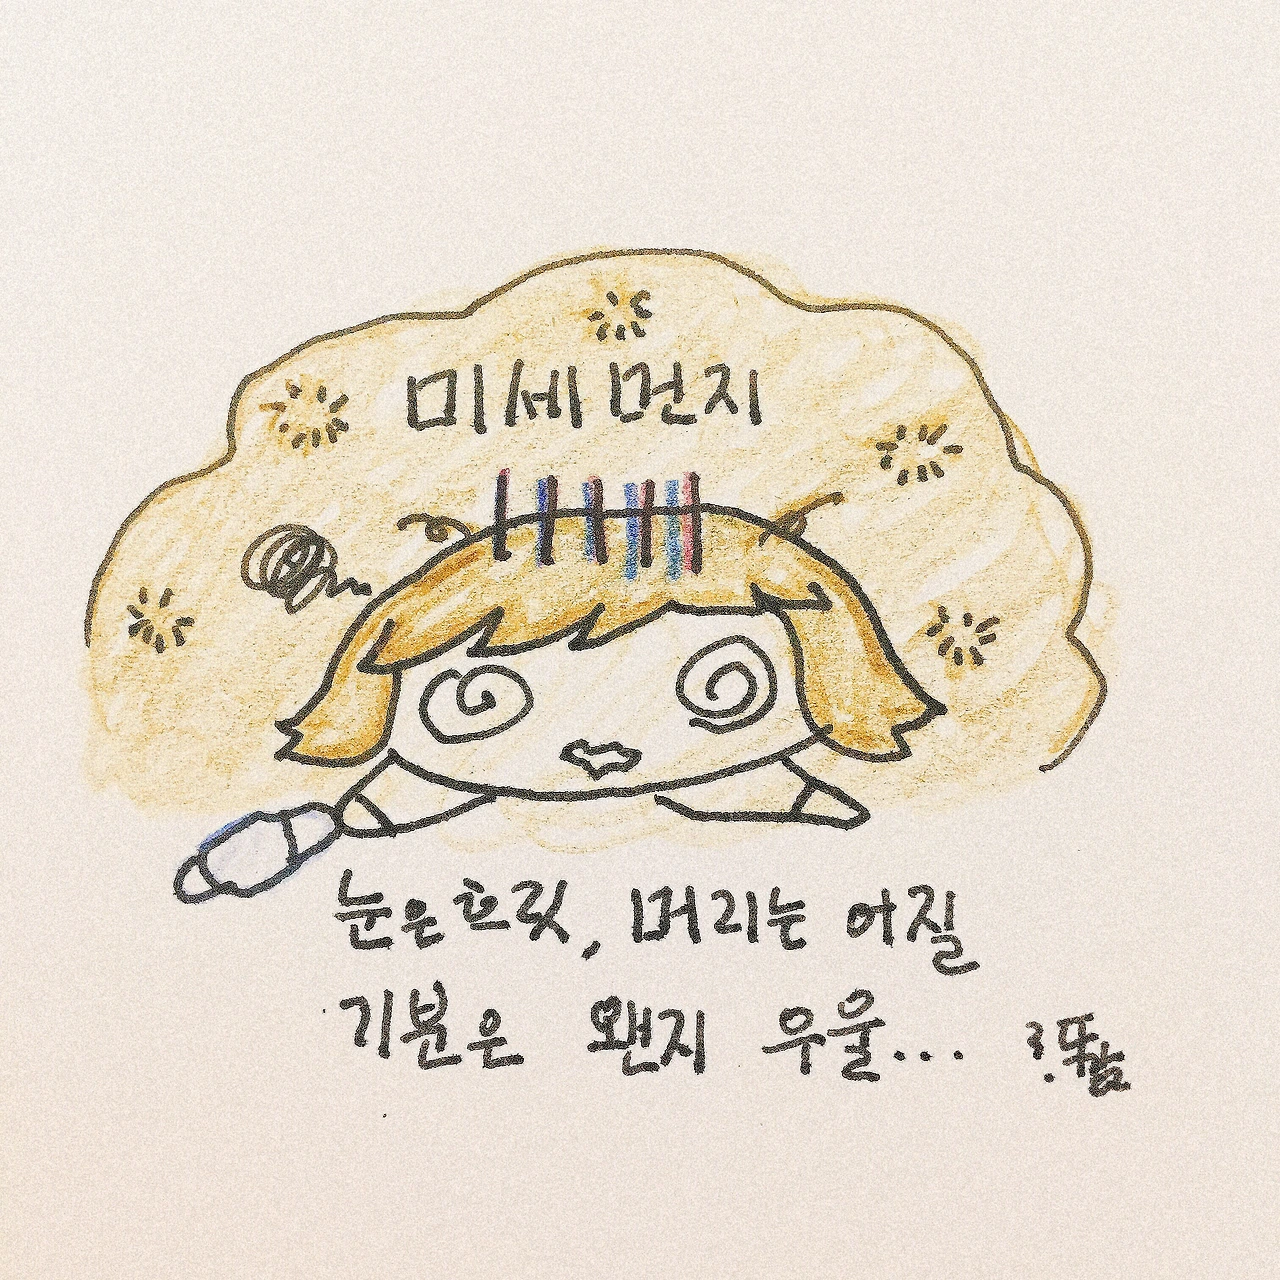 미세먼지
눈은 흐릿, 머리는 어질
기분은 왠지 우울...